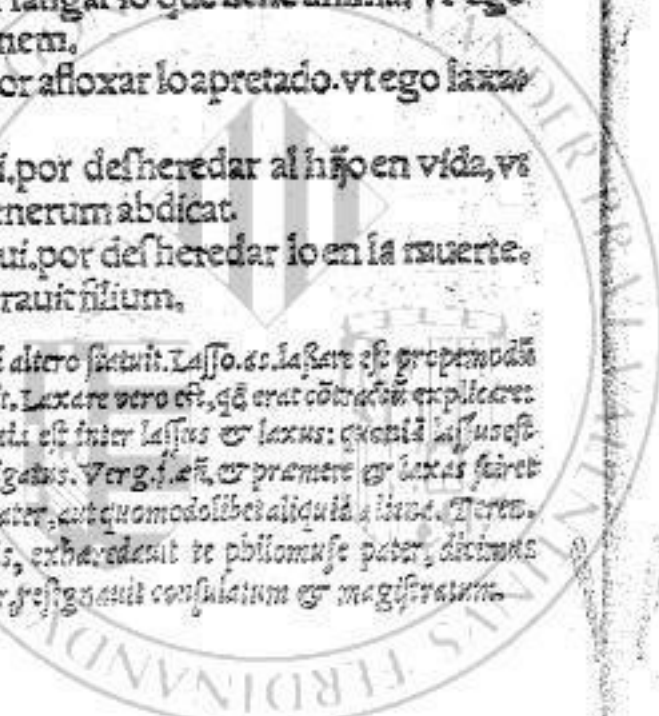 fatigar lo que tiene anima, vt ego
nem.
or afloxar lo apretado. vt ego laxa-
i. por deſheredar al hijo en vida, vt
enerum abdicat.
ui. por deſheredar lo en la muerte.
rauit filium.
altero ſtatuit. Laſſo. as. laſſare eſt propemodū
t. Laxare vero eſt, qđ erat cōtractū explicare:
eſt inter laſſus & laxus: quoniā laſſus eſt
igatus. Verg. j. æñ, & præmere & laxas ſciret
ater, aut quomodolibet aliquid Teren.
s, exhæredauit te philomuſe pater, dicimus
r, reſignauit conſulatum & magiſtratum.